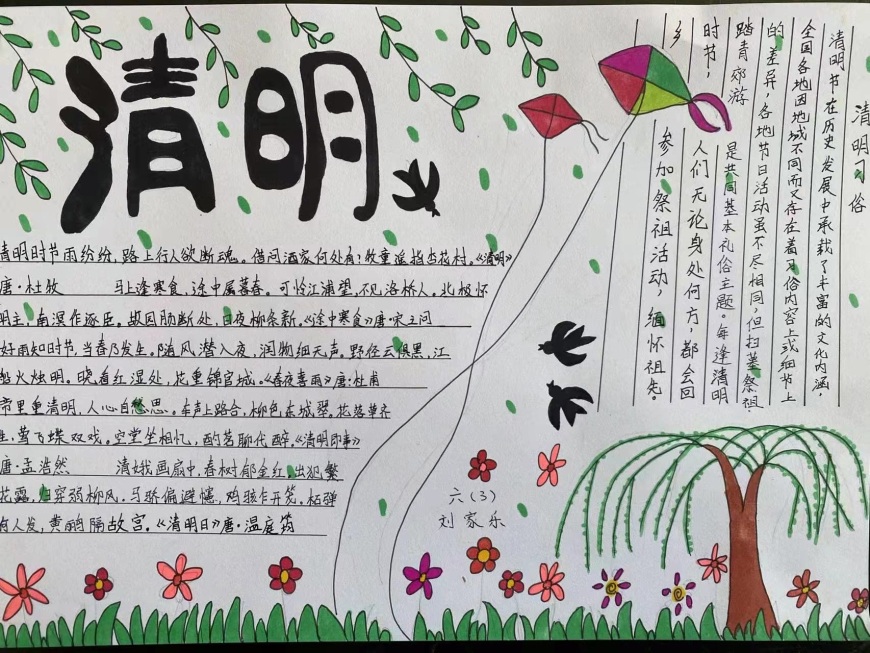 清明
清明时节雨纷纷，路上行人欲断魂。借问酒家何处有？牧童遥指杏花村。《清明》
唐·杜牧 马上逢寒食，途中属暮春。可怜江浦望，不见洛桥人。北极怀
明主，南溟作逐臣。故园肠断处，日夜柳条新。《途中寒食》唐·宋之问
好雨知时节，当春乃发生。随风潜入夜，润物细无声。野径云俱黑，江
船火烛明。晓看红湿处，花重锦官城。《春夜喜雨》唐·杜甫
帝里重清明，人心自愁思。车声上路合，柳色东城翠。花落草齐
生，莺飞蝶双戏。空堂坐相忆，酌茗聊代醉。《清明即事》
唐·孟浩然 清娥画扇中，春树郁金红。出犯繁
花露，归穿弱柳风。马骄偏避幰，鸡骇乍开笼。柘弹
何人发，黄鹂隔故宫。《清明日》唐·温庭筠
清明习俗
清明节，在历史发展中承载了丰富的文化内涵，
全国各地因地域不同而又存在着习俗内容上或细节上
的差异，各地节日活动虽不尽相同，但扫墓祭祖、
踏青郊游是共同基本礼俗主题。每逢清明
时节，人们无论身处何方，都会回
乡参加祭祖活动，缅怀祖先。
六(3)
刘家乐